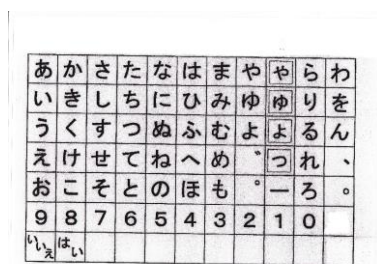 あ か さ た な は ま や ゃ ら わ
い き し ち に ひ み ゆ ゅ り を
う く す つ ぬ ふ む よ ょ る ん
え け せ て ね へ め ゛ っ れ 、
お こ そ と の ほ も ゜ ー ろ 。
9 8 7 6 5 4 3 2 1 0
いいえ はい